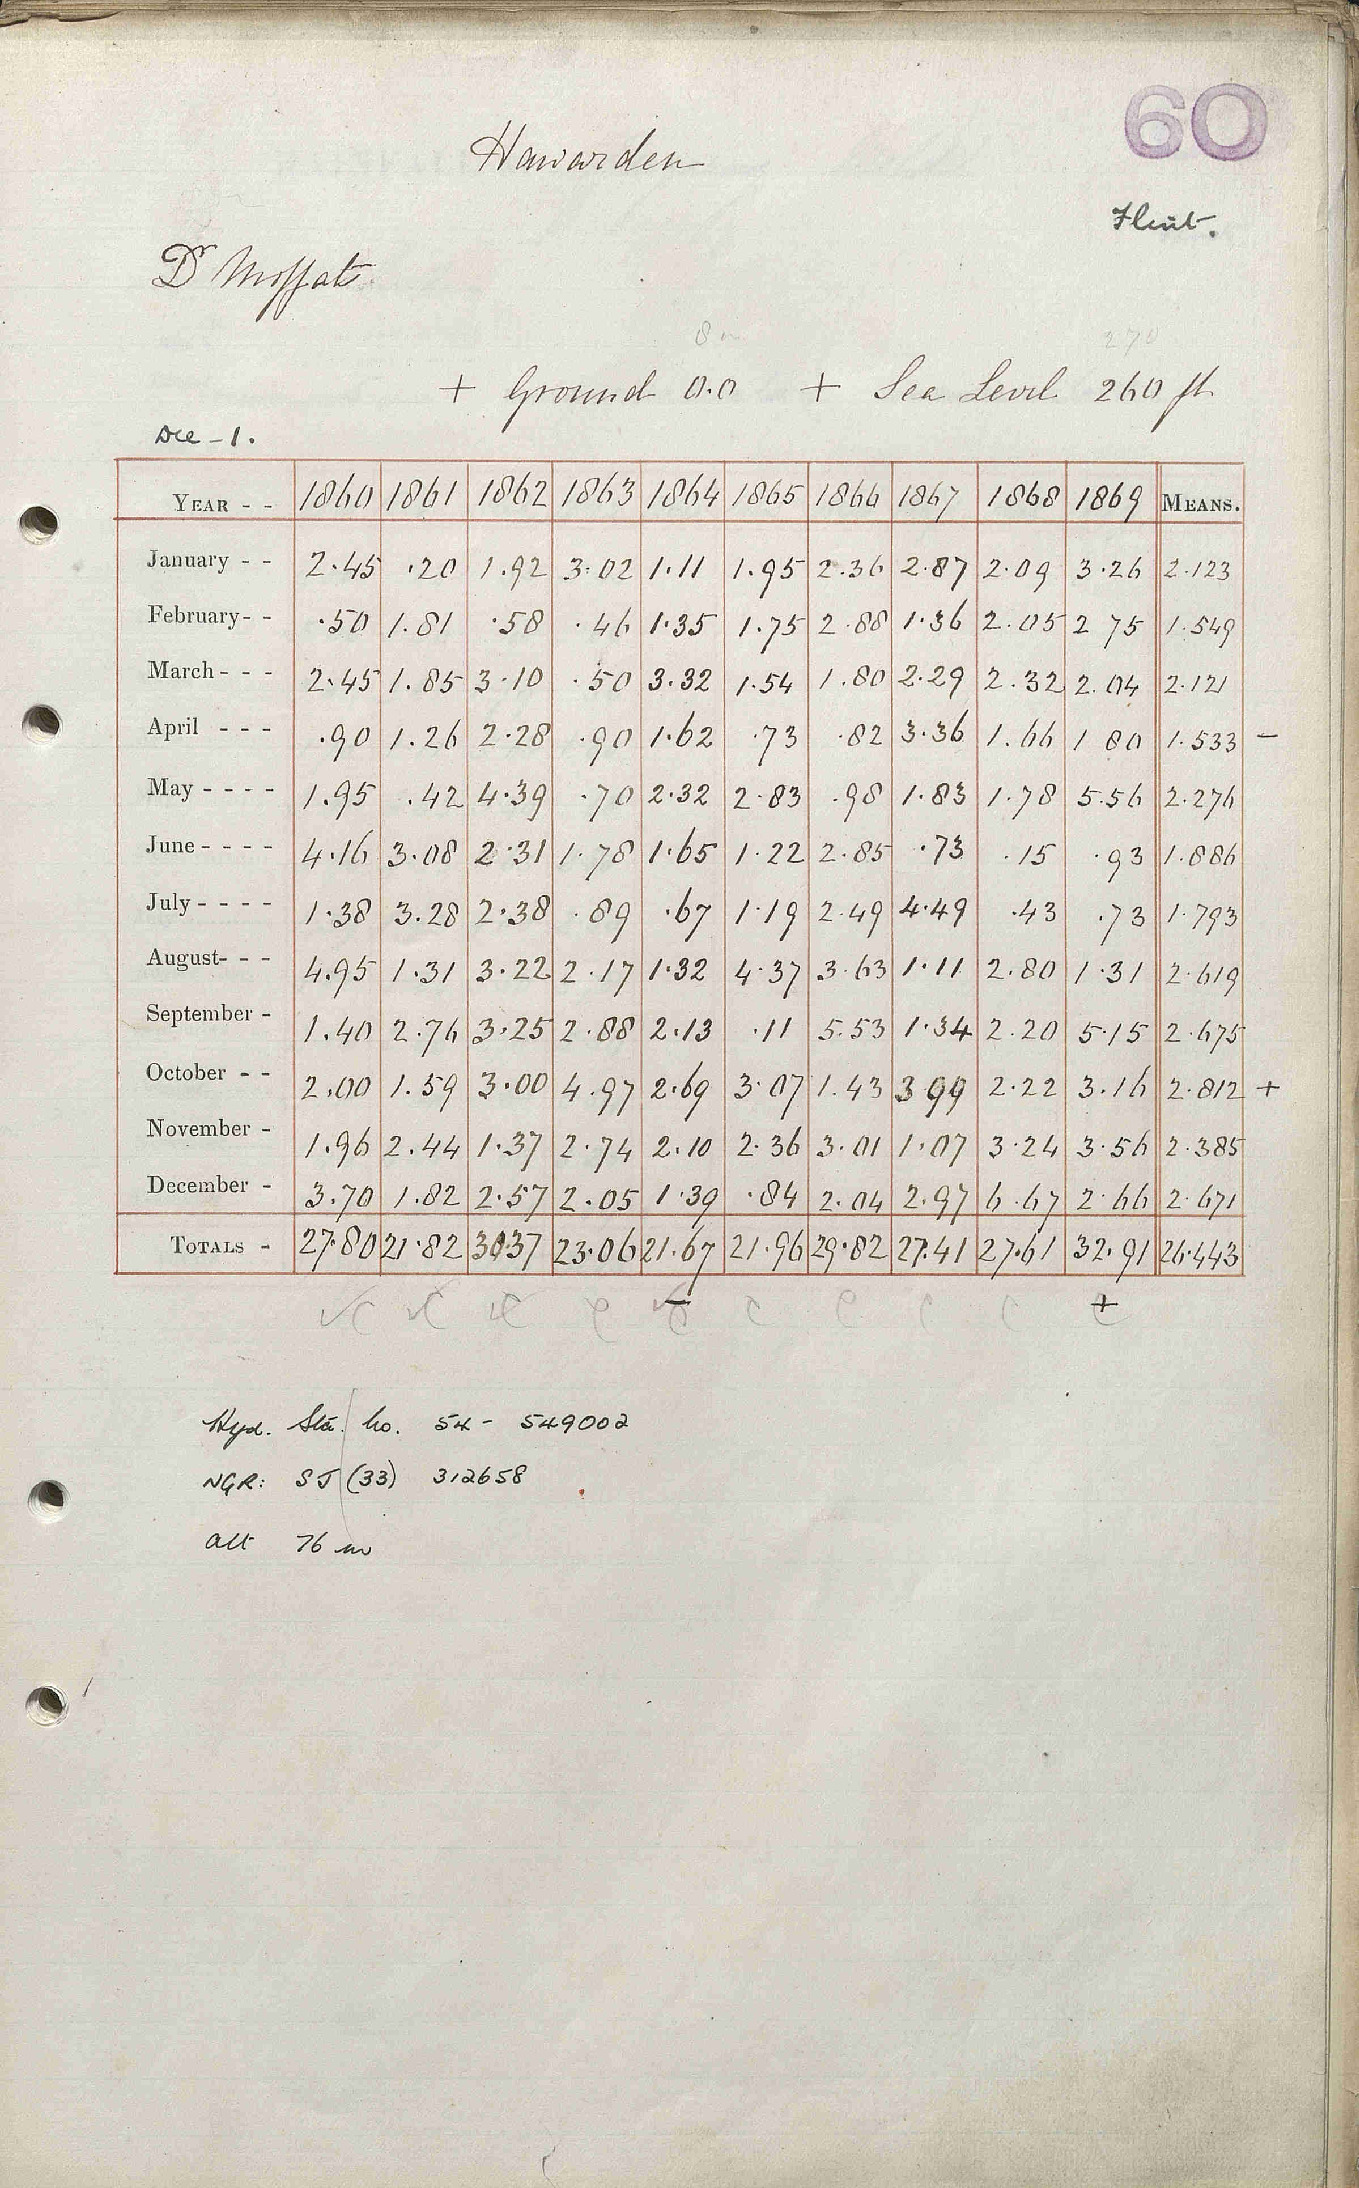 60
Hawarden
Flint.
Dr Moffat
270
+ Ground 0.0 + Sea Level 260 ft
Dec - 1.
YEAR - - 1860 1861 1862 1863 1864 1865 1866 1867 1868 1869 MEANS.
January - - 2.45 .20 1.92 3.02 1.11 1.95 2.36 2.87 2.09 3.26 2.123
February - - .50 1.81 .58 .46 1.35 1.75 2.88 1.36 2.05 2 75 1.549
March - - - 2.45 1.85 3.10 .50 3.32 1.54 1.80 2.29 2.32 2.04 2.121
April - - - .90 1.26 2.28 .90 1.62 .73 .82 3.36 1.66 1 80 1.533 -
May - - - - 1.95 .42 4.39 .70 2.32 2.83 .98 1.83 1.78 5.56 2.276
June - - - - 4.16 3.08 2.31 1.78 1.65 1.22 2.85 .73 .15 .93 1.886
July - - - - 1.38 3.28 2.38 .89 .67 1.19 2.49 4.49 .43 .73 1.793
August - - - 4.95 1.31 3.22 2.17 1.32 4.37 3.63 1.11 2.80 1.31 2.619
September - 1.40 2.76 3.25 2.88 2.13 .11 5.53 1.34 2.20 5.15 2.675
October - - 2.00 1.59 3.00 4.97 2.69 3.07 1.43 3 99 2.22 3.16 2.812 +
November - 1.96 2.44 1.37 2.74 2.10 2.36 3.01 1.07 3.24 3.56 2.385
December - 3.70 1.82 2.57 2.05 1.39 .84 2.04 2.97 6.67 2.66 2.671
TOTALS - 27.80 21.82 30.37 23.06 21.67 21.96 29.82 27.41 27.61 32.91 26.443
- +
Hyd. Sta. No. 54 - 549002
NGR: SJ (33) 312658
Alt 76 m